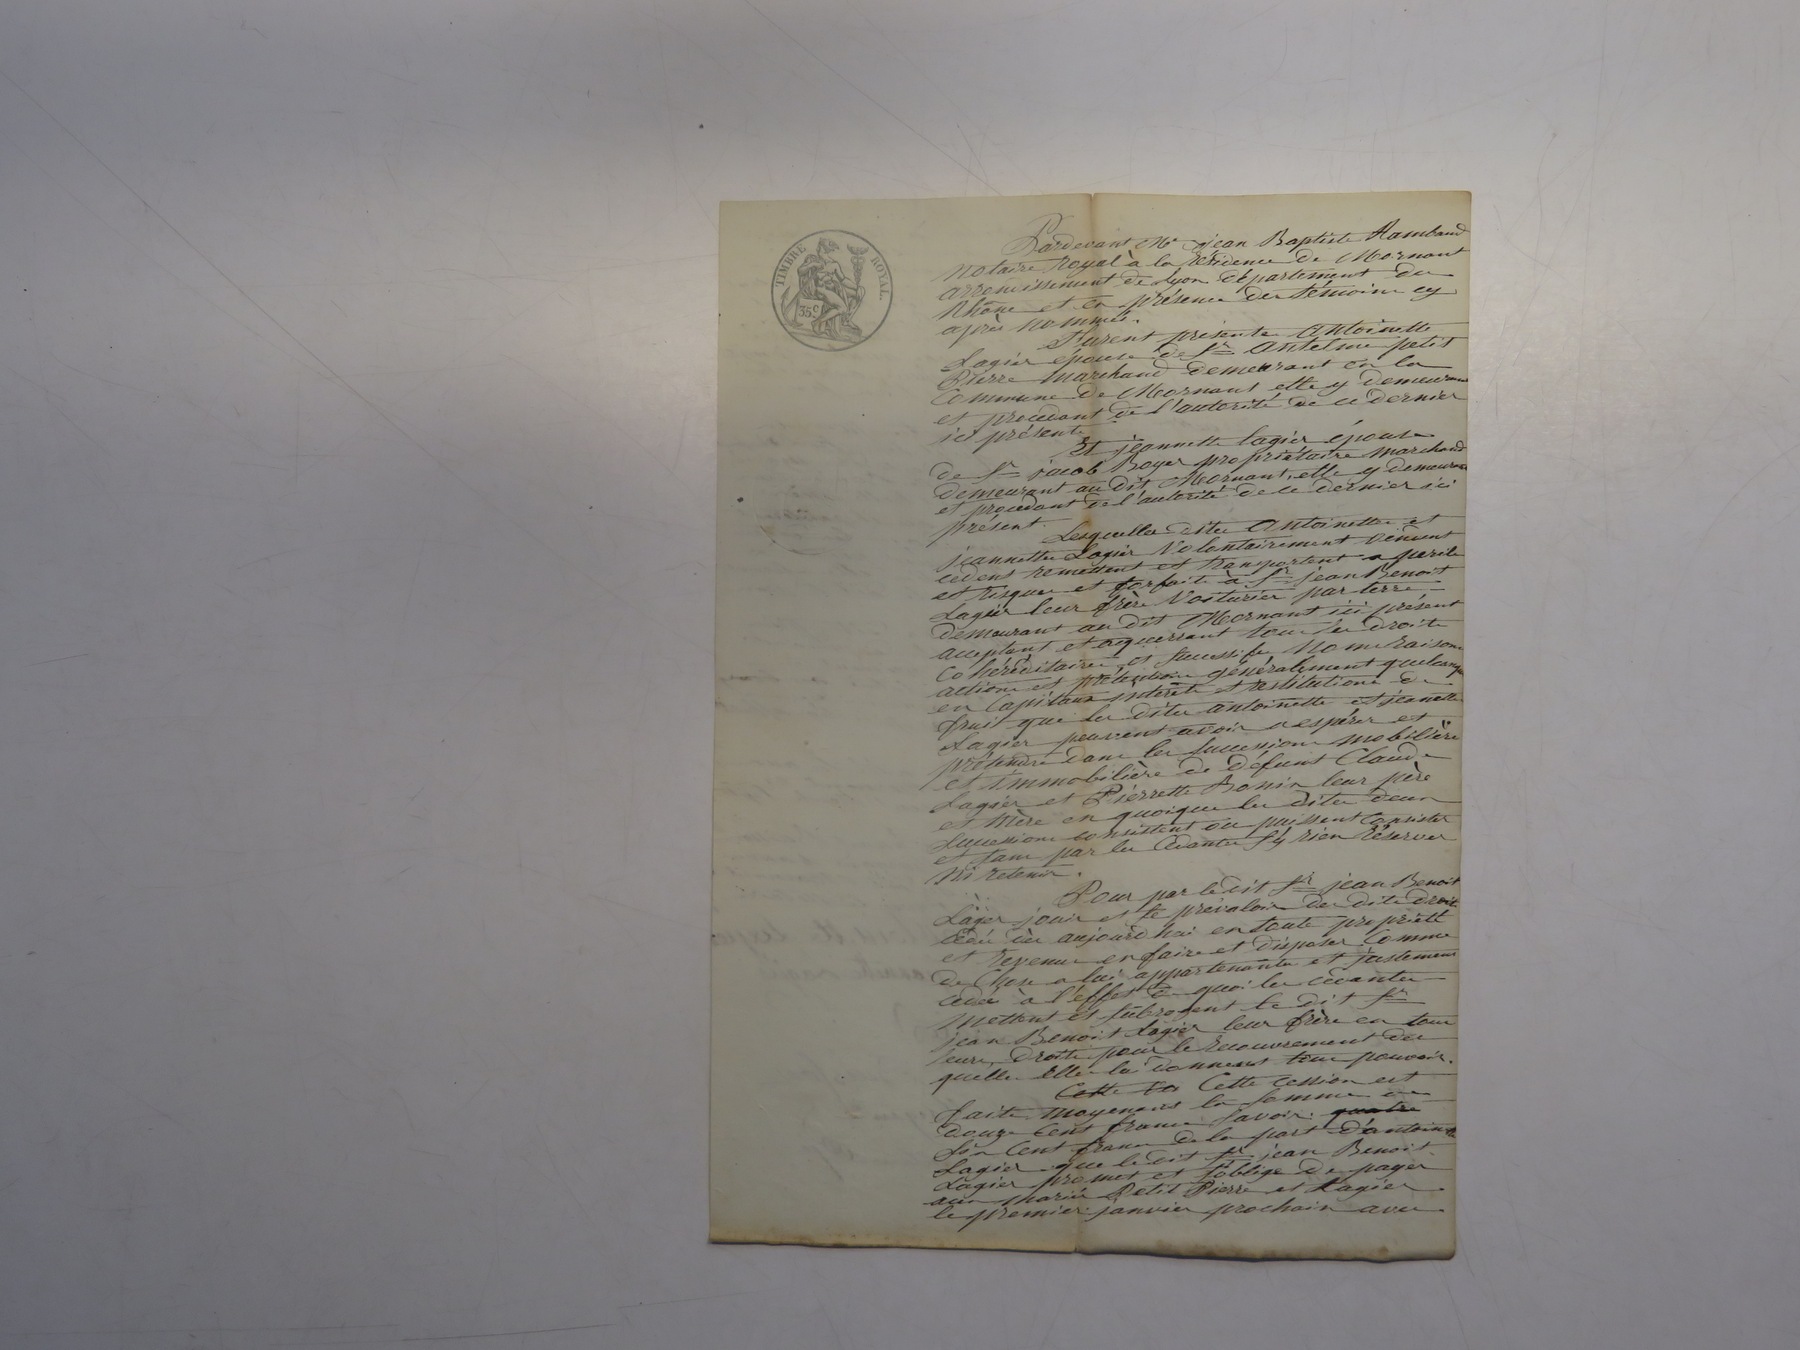 TIMBRE ROYAL.
35 c
Pardevant Me jean Baptiste Rambaud
notaire Royal à la Résidence de Mornant
arrondissement de Lyon département du
Rhône et en présence des témoins cy
après nommés.
Furent présente Antoinette
Lagier épouse de Sr Antelme petit
Pierre marchand demeurant en la
Commune de Mornant elle y demeurant
et procédant de l'autorité de ce dernier
ici présent
Et jeannette lagier épouse
de Sr jacob Boyer propriétaire marchand
demeurant au dit Mornant, elle y demeurant
et procédant de l'autorité de ce dernier ici
présent.
Lesquelles dites Antoinette et
jeannette Lagier Volontairement
cèdent remettent et transportent a
et risques et forfait à Sr jean Benoit
Lagier leur frère Voiturier par terre
demeurant au dit Mornant ici présent
acceptant et aquerrant tous les droits
Cohéréditaires et Successifs Noms raisons
actions et prétentions généralement quelconques
en Capitaux intérêts et restitutions de
fruit que les dites antoinette et jeannette
Lagier peuvent avoir a espérer et
prétendre dans les Successions mobilière
et immobilière de défunt Claude
Lagier et Pierrette Bonin leur père
et mère en quoique les dites deux
Successions consistent ou puissent consister
et sans par les Cédantes s'y rien réserver
ni retenir.
Pour par le dit Sr jean Benoit
Lager jouir et se prévaloir des dits droits
cédés dès aujourd'hui en toute propriété
et revenus en faire et disposer Comme
de Chose a lui appartenante et justement
cédée à l'effet de quoi les cédantes
mettent et subrogent le dit Sr
jean Benoit Lagier leur frère en tous
leurs droits pour le Recouvrement des
quelles Elles lui donnent tous pouvoirs.
Cette Cette cession est
faite moyennant la somme de
douze Cent francs Savoir: quatre
Six Cent francs de la part d'antoinette
Lagier que le dit Sr jean Benoit
Lagier promet et s'oblige de payer
aux mariés Petit Pierre et Lagier
le premier janvier prochain avec